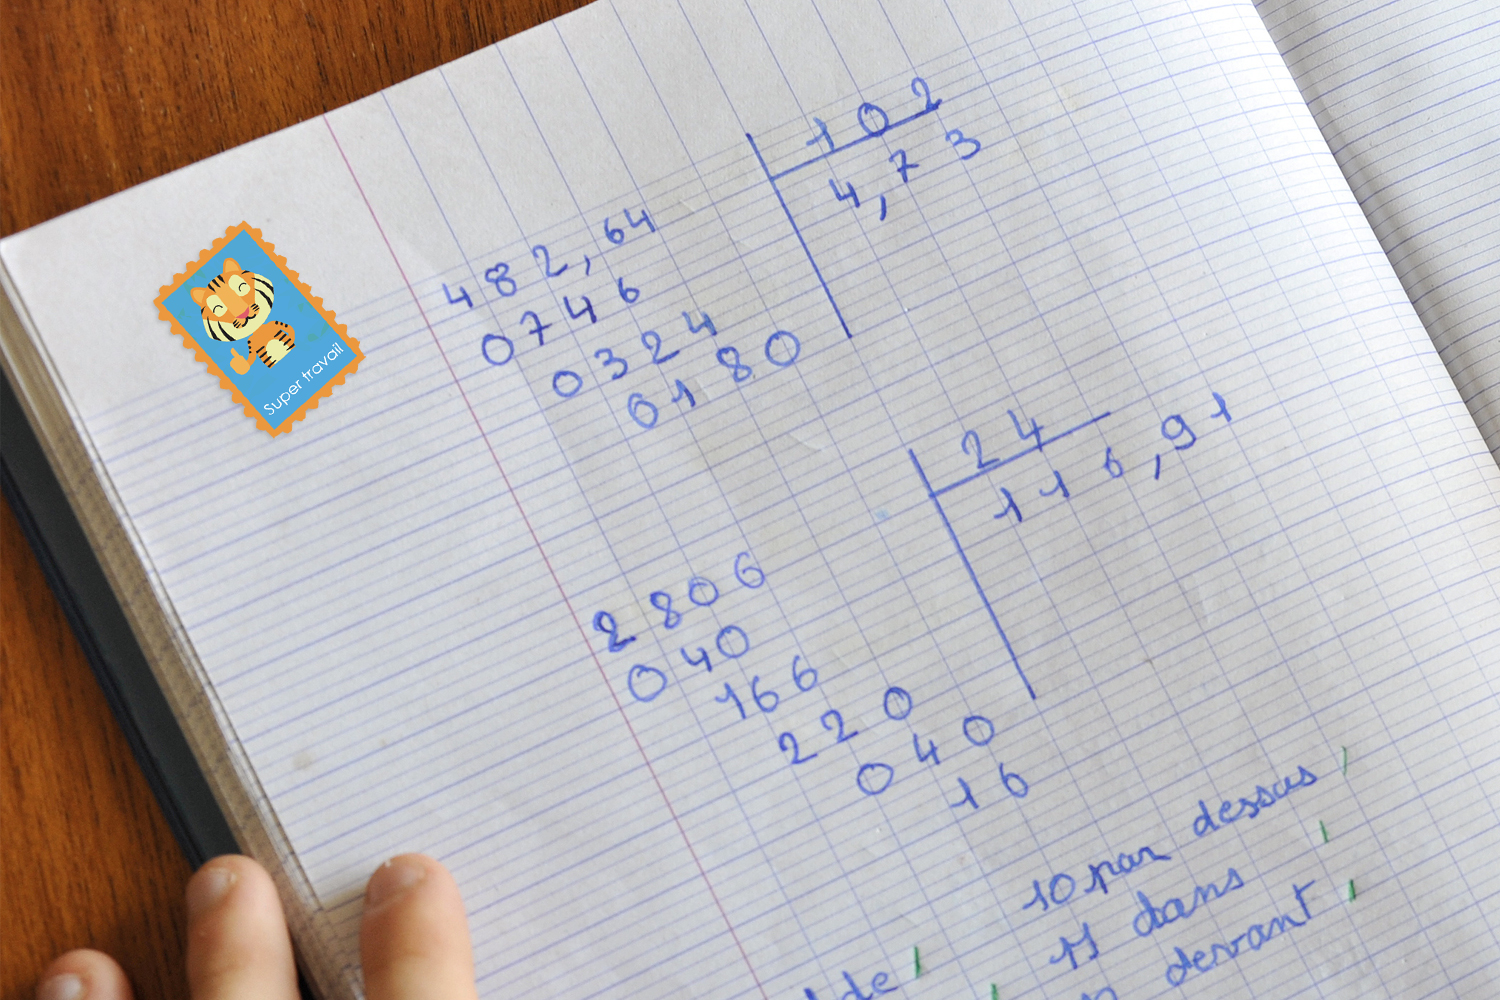 Super travail
102
482,64
4,73
0746
0324
0180
24
2806
116,91
040
166
220
040
16
10 par dessus
11 dans
de
devant